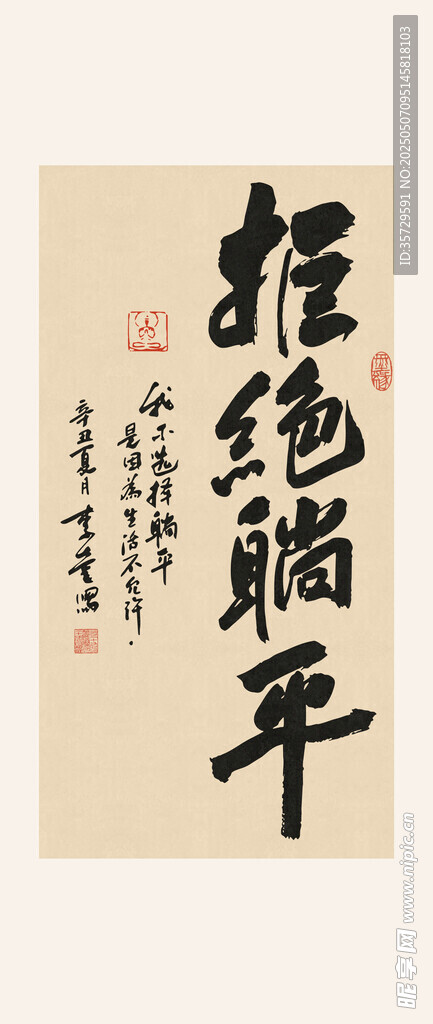 拒絶躺平
我不选择躺平
是因為生活不允許
辛丑夏月
ID:35729591 NO:20250507095145818103
昵享网 www.nipic.cn